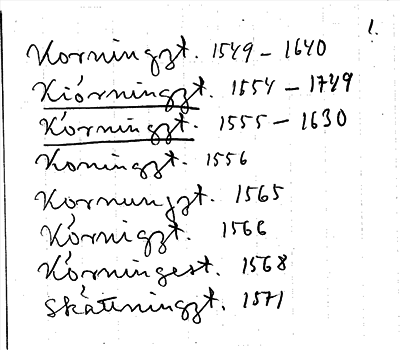 1.
Korningzt. 1549 - 1640
Kiórningzt. 1554 - 1749
Kórningzt. 1555 - 1630
Koningzt. 1556
Kornungzt. 1565
Kórnigzt. 1566
Kórningest. 1568
Skátningzt. 1571